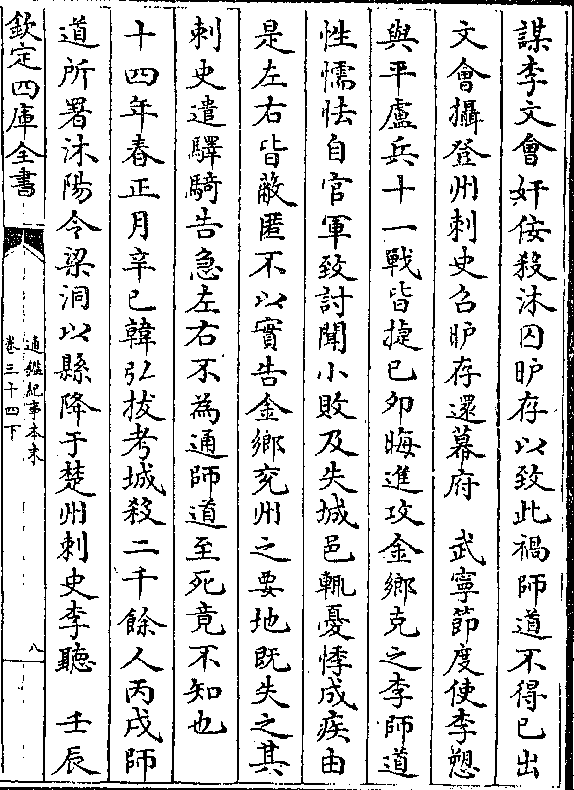 謀李文會奸佞殺沐囚昈存以致此禍師道不得已出
文會攝登州刺史召昈存還幕府　武寧節度使李愬
與平盧兵十一戰皆捷己夘晦進攻金鄉克之李師道
性懦怯自官軍致討聞小敗及失城邑輒憂悸成疾由
是左右皆蔽匿不以實告金鄉兖州之要地既失之其
刺史遣驛騎告急左右不為通師道至死竟不知也
十四年春正月辛巳韓弘拔考城殺二千餘人丙戌師
道所署沐陽令梁洞以縣降于楚州刺史李聽　壬辰
欽定四庫全書
通鑑紀事本末
卷三十四下
八